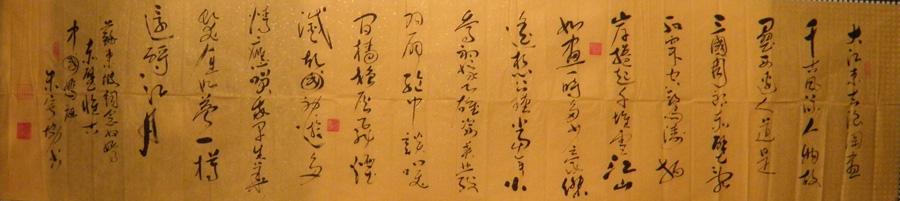 大江東去浪淘盡
千古風流人物故
壘西邊人道是
三國周郎赤壁亂
石穿空驚濤拍
岸捲起千堆雪江山
如畫一時多少豪傑
遙想公瑾當年小
喬初嫁了雄姿英發
羽扇綸巾談笑
間檣櫓灰飛煙
滅故國神遊多
情應笑我早生華
髮人生如夢一樽
還酹江月
蘇東坡詞念奴嬌
赤壁懷古
中國